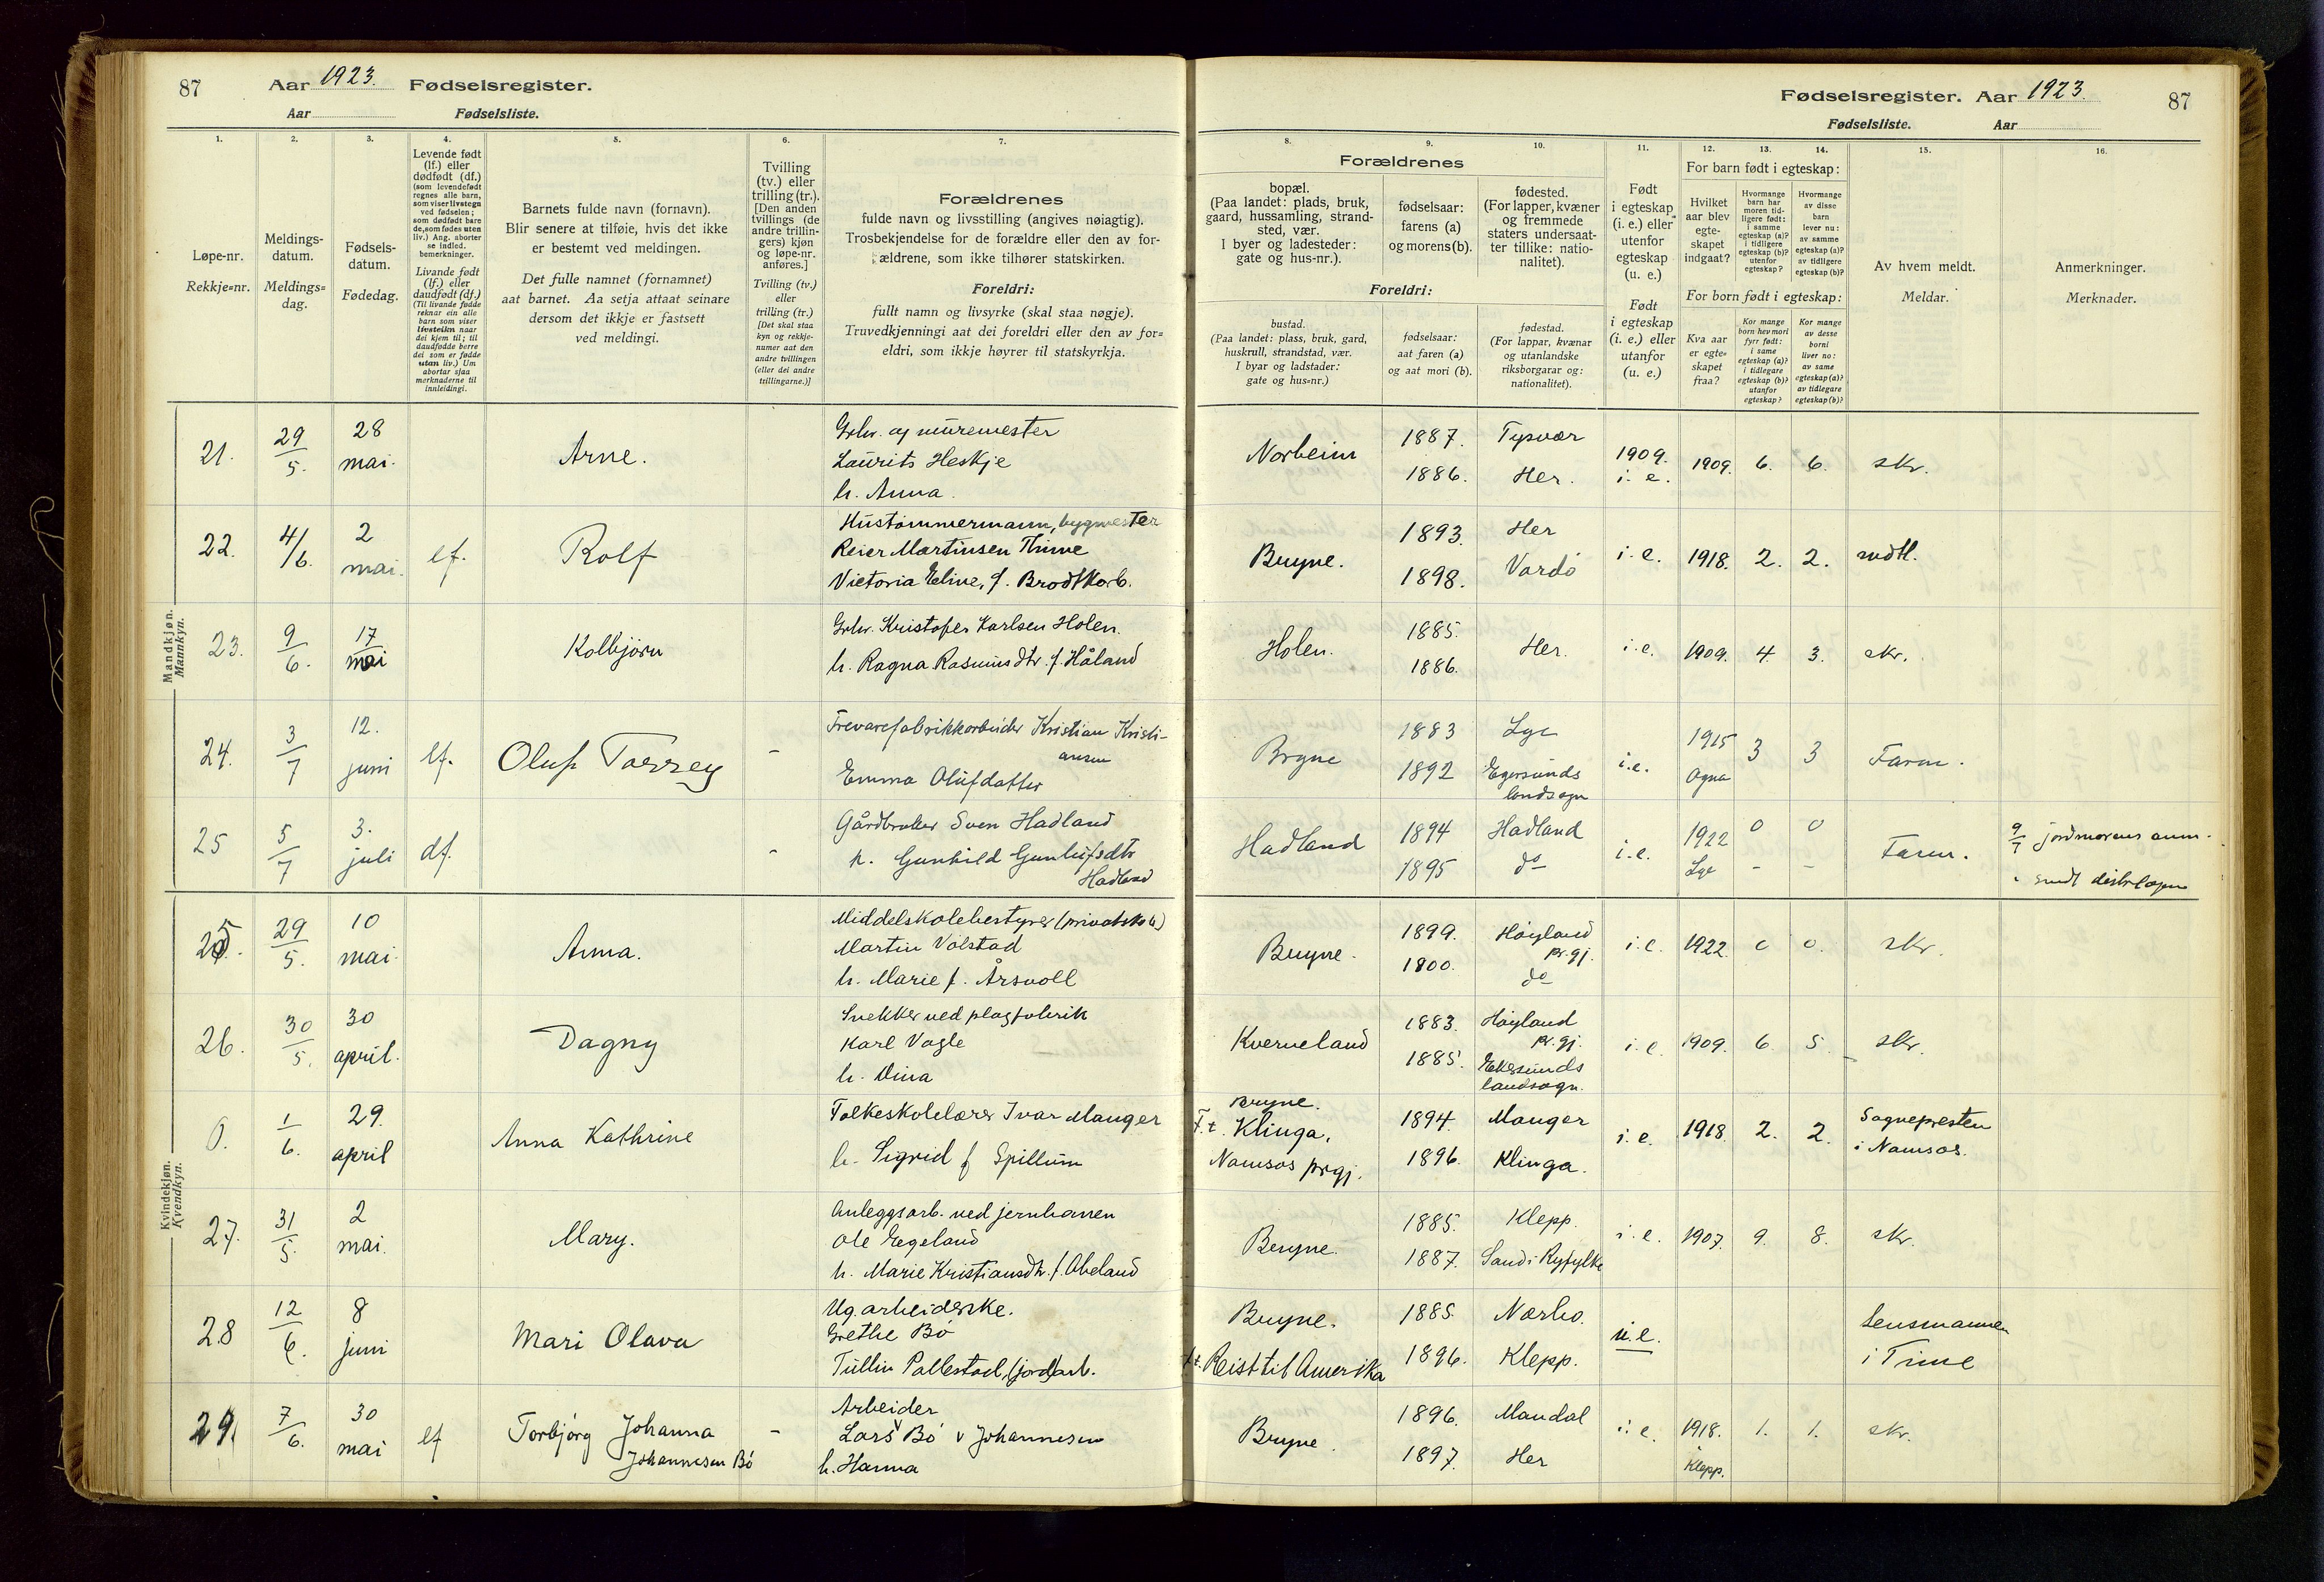 87 Aar 1923. Fødselsregister.
Aar Fødselsliste.
Fødselsregister. Aar 1923. 87
Fødselsliste. Aar
1. 2. 3. 4. 5. 6. 7. 8. 9. 10. 11. 12. 13. 14. 15. 16.
Løpe-nr.
Rekkje=nr.
Meldings-
datum.
Meldings=
dag.
Fødsels-
datum.
Fødedag.
Levende født
(lf.) eller
dødfødt (df.)
(som levendefødt
regnes alle barn,
som viser livstegn
ved fødselen;
som dødfødt bare
de, som fødes uten
liv.) Ang. aborter
se indled.
bemerkninger.
Livande født
(lf.) eller
daudfødt (df.)
(Til livande fødde
reknar ein alle
barn som viser
livsteikn naar
dei kjem til; til
daudfødde berre
dei som er fødde
utan liv.) Um
abortar sjaa
merknaderne til
innleidingi.
Barnets fulde navn (fornavn).
Blir senere at tilføie, hvis det ikke
er bestemt ved meldingen.
Det fulle namnet (fornamnet)
aat barnet. Aa setja attaat seinare
dersom det ikkje er fastsett
ved meldingi.
Tvilling
(tv.) eller
trilling (tr.).
[Den anden
tvillings (de
andre trillin-
gers) kjøn
og løpe-nr.
anføres.]
Tvilling (tv.)
eller
trilling (tr.)
[Det skal staa
kyn og rekkje-
numer aat den
andre tvillingen
(eller dei andre
trillingarne.)]
Forældrenes
fulde navn og livsstilling (angives nøiagtig).
Trosbekjendelse for de forældre eller den av for-
ældrene, som ikke tilhører statskirken.
Foreldri:
fullt namn og livsyrke (skal staa nøgje).
Truvedkjenningi aat dei foreldri eller den av for=
eldri, som ikkje høyrer til statskyrkja.
Forældrenes
bopæl.
(Paa landet: plads, bruk,
gaard, hussamling, strand-
sted, vær.
I byer og ladesteder:
gate og hus-nr.).
fødselsaar:
farens (a)
og morens (b).
fødested.
(For lapper, kvæner
og fremmede
staters undersaat-
ter tillike: natio-
nalitet).
Foreldri:
bustad.
(Paa landet: plass, bruk, gard,
huskrull, strandstad, vær.
I byar og ladstader:
gate og hus=nr.)
fødselsaar:
aat faren (a)
og aat mori (b).
fødestad.
(For lappar, kvænar
og utanlandske
riksborgarar og:
nationalitet).
Født
i egteskap
(i. e.) eller
utenfor
egteskap
(u. e.)
Født
i egteskap
(i. e.) eller
utanfor
(u. e.)
For barn født i egteskap:
Hvilket
aar blev
egte-
skapet
indgaat?
Hvormange
barn har
moren tid-
ligere født:
i samme
egteskap (a)?
i tidligere
egteskap (b)?
utenfor
egteskap?
Hvormange
av disse
barn
lever nu:
av samme
egteskap (a)?
av tidligere
egteskap (b)?
For born født i egteskap:
Kva aar
er egte=
skapet
fraa?
Kor mange
born hev mori
fyrr født:
i same
egteskap (a)?
i tidlegare
egteskap (b)?
utanfor
egteskap?
Kor mange
av desse
borni
liver no:
av same
egteskap (a)?
av tidlegare
egteskap (b)?
Av hvem meldt.
Meldar.
Anmerkninger.
Merknader.
Mandkjøn.
Mannkyn.
21. 29/5. 28 mai. Arne. Grbr. og muremester
Laurits Heskje
h. Anna. Norheim 1887. 1886. Tysvær Her. 1909. i. e. 1909. 6. 6. skr.
22. 4/6. 2 mai. lf. Rolf Hustømmermann, bygmester
Reier Martinsen Thime
Victoria Eline, f. Brodtkorb. Bryne. 1893. 1898. Her Vardø i. e. 1918. 2. 2. mdtl.
23. 9/6. 17 mai Kolbjørn Grbr. Kristofer Karlsen Holen.
h. Ragna Rasmusdtr. f. Håland Holen. 1885. 1886. Her. i. e. 1909. 4. 3. skr.
24. 3/7 12. juni lf. Oluf Torrey - Trevarefabrikkarbeider Kristian Kristi-
ansen
Emma Olufdatter Bryne 1883 1892 Lye Egersunds landsogn i.e. 1915 Ogna 3 3 Faren.
25 5/7 3. juli df. - Gårdbruker Sven Hadland
h. Gunhild Gunlufsdtr
Hadland Hadland 1894 1895 Hadland do i.e. 1922 Lye 0 0 - - Faren. 9/7 jordmorens anm.
sendt distr.lægen
Kvindekjøn.
Kvendkyn.
25. 29/5. 10 mai. Anna. Middelskolebestyrer (privatskole)
Martin Vølstad
h. Marie f. Årsvoll Bryne. 1899. 1900. Høyland pr.gj. do i. e. 1922. 0 0. skr.
26. 30/5. 30 april. Dagny Snekker ved plogfabrik
Karl Vagle
h. Dina Kverneland 1883. 1885. Høyland pr. gj. Ekersunds landsogn. i. e. 1909. 6. 5. skr.
0. 1/6. 29. april Anna Kathrine Folkeskolelærer Ivar Manger
h. Sigrid f Spillum Bryne. F. t. Klinga, Namsos prgj. 1894. 1896. Manger Klinga. i. e. 1918. 2. 2. Sognepresten
i Namsos.
27. 31/5. 2 mai. Mary. Anleggsarb. ved jernbanen
Ole Egeland
h. Marie Kristiansdtr. f. Obeland Bryne. 1885. 1887. Klepp. Sand i Ryfylke i. e. 1907. 9. 8. skr.
28 12/6. 8 juni Mari Olava Ug. arbeiderske.
Grethe Bø
Tullin Pallestad, (jord)arb. Bryne. f.t. Reist til Amerika 1885. 1896. Nærbø. Klepp. u.e. Lensmannen
i Time
29. 7/6. 30 mai lf Torbjørg Johanna
Johannesen Bø - Arbeider
Lars Bø v Johannesen
h. Hanna Bryne. 1896. 1897. Mandal Her i. e. 1918. i Klepp. 1. 1. skr.